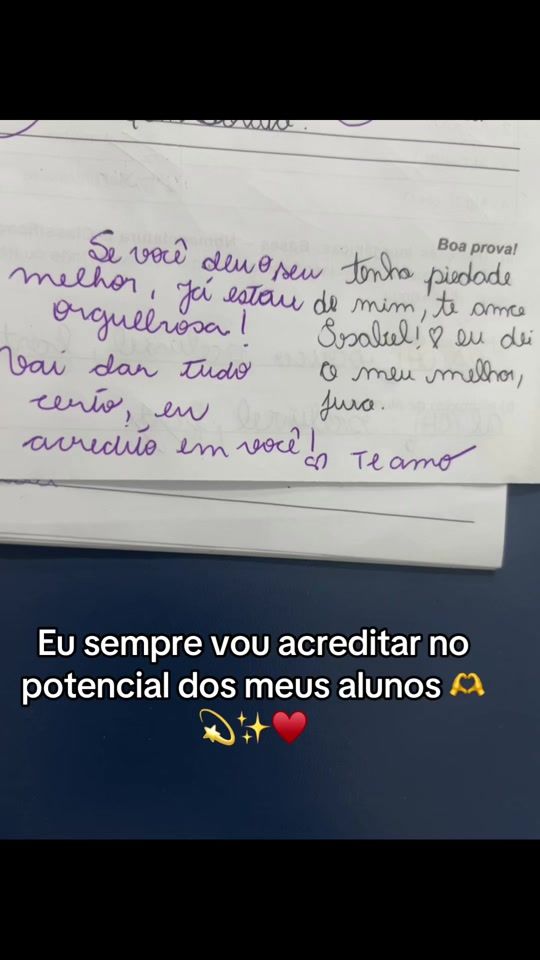 Boa prova!
tenha piedade
de mim, te amo
Isabel! ♡ eu dei
o meu melhor,
juro.
Se você deu o seu
melhor, já estou
orgulhosa!
Vai dar tudo
certo, eu
acredito em você!
♡ Te amo
Eu sempre vou acreditar no
potencial dos meus alunos 🫶
💫✨♥️